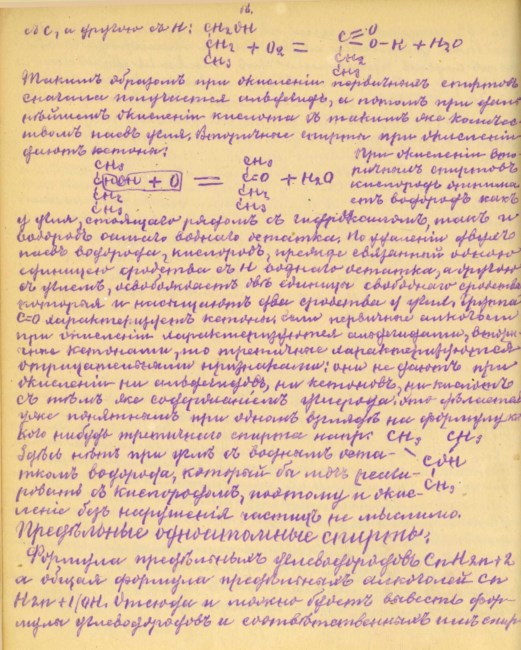 18.
съ C, а другою съ H: CH2OH
CH2 + O2 = C=O O-H + H2O
CH3 CH2 CH3
Такимъ образомъ при окисленіи первичныхъ спиртовъ
сначала получается альдегидъ, а потомъ при даль
нѣйшемъ окисленіи кислота съ такимъ же количес
твомъ паевъ угля. Вторичные спирты при окисленіи
даютъ кетоны:
CH3 CH3
CHOH + O = C=O + H2O
CH2 CH2
CH3 CH3
При окисленіи вто
ричныхъ спиртовъ
кислородъ отнима
етъ водородъ какъ
у угля, стоящаго рядомъ съ гидроксиломъ, такъ и
водородъ самаго воднаго остатка. По удаленіи двухъ
паевъ водорода, кислородъ, прежде связанный одною
единицею сродства съ H воднаго остатка, а другою
съ углемъ, освобождаетъ двѣ единицы свободнаго сродства
которыя и насыщаютъ два сродства у угля, группа
C=O характеризуетъ кетоны; если первичные алкоголи
при окисленіи характеризуются альдегидами, вторич
ные кетонами, то третичные характеризуются
отрицательными признаками: они не даютъ при
окисленіи ни альдегидовъ, ни кетоновъ, ни кислотъ
съ тѣмъ же содержаніемъ углерода. Это дѣлается
уже понятнымъ при одномъ взглядѣ на формулу ка
кого нибудь третичнаго спирта напр. CH3 CH3
Здѣсь нѣтъ при углѣ съ воднымъ оста- COH
ткомъ водорода, который бы могъ реаги- CH3
ровать съ кислородомъ, поэтому и окис-
леніе безъ нарушенія частицы не мыслимо.
Предѣльные одноатомные спирты.
Формула предѣльныхъ углеводородовъ CnH2n+2
а общая формула предѣльныхъ алкоголей Cn
H2n+1(OH. Отсюда и можно будетъ вывесть фор-
мулы углеводородовъ и соотвѣтственныхъ имъ спир-